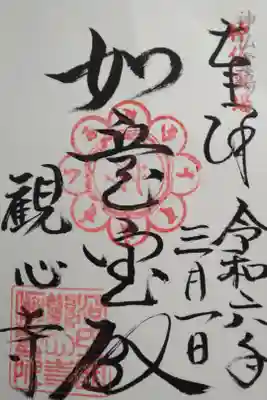 奉拝
令和六年
三月一日
如意宝殿
観心寺